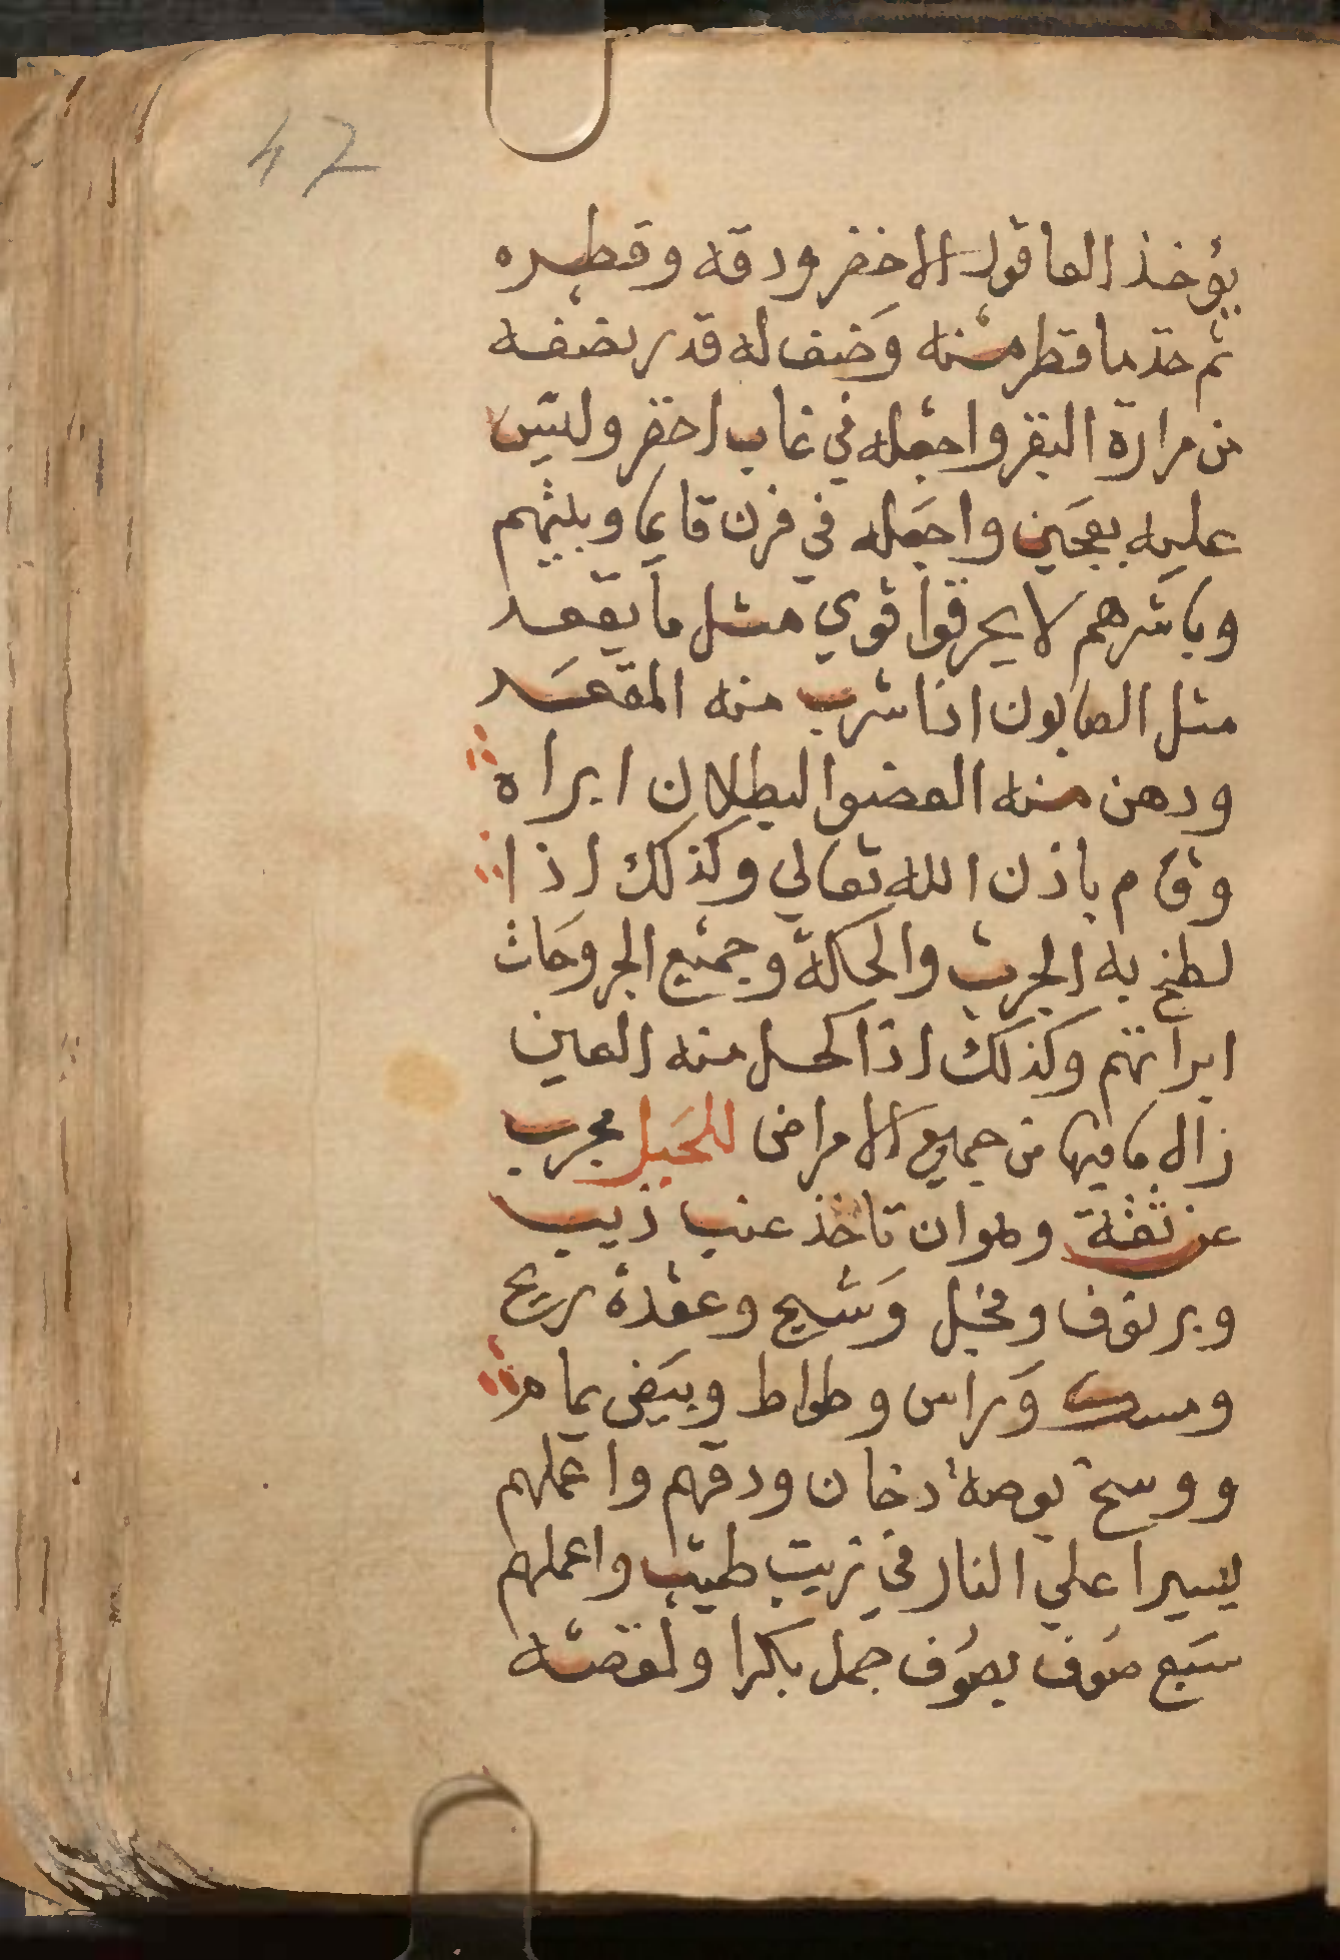 42
يؤخذ العاقول الاخضر ودقه وقطره
ثم خذ ما قطر منه وضف له قدر نصفه
من مرارة البقر واجعله في غاب اخضر وليس
عليه بعجين واجعله في فرن قايما وبليثهم
وباشرهم لا يحرقوا قوي مثل ما يقعد
مثل الصابون اذا شرب منه المقعد
ودهن منه العضوا البطلان ابراه
وقام باذن الله تعالي وكذلك اذا
لطخ به الجرب والحكاة وجميع الجروحات
ابراتهم وكذلك اذا كحل منه العين
زال ما فيها من جميع الامراض للحبل مجرب
عن ثقة وهوان تاخذ عنب ذيب
وبرنوف ومخيل وشيح وعقدة ريح
ومسك وراس وطواط وبيض يمام
ووسخ بوصة دخان ودقهم واعملهم
يسيرا علي النار في زيت طيب واعملهم
سبع صوف بصوف جمل بكرا ولقصته